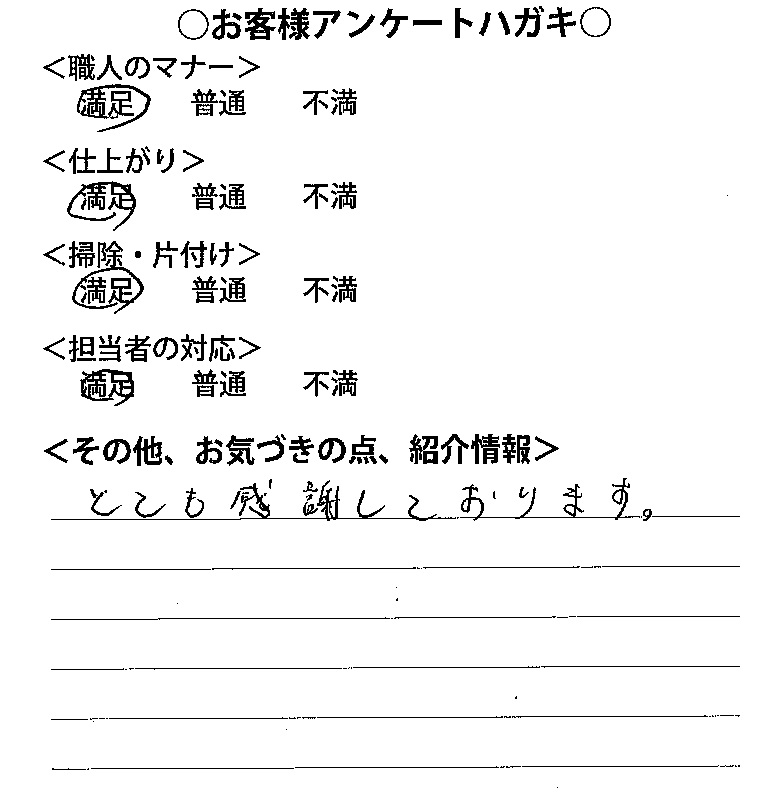 ○お客様アンケートハガキ○
＜職人のマナー＞
満足 普通 不満
＜仕上がり＞
満足 普通 不満
＜掃除・片付け＞
満足 普通 不満
＜担当者の対応＞
満足 普通 不満
＜その他、お気づきの点、紹介情報＞
とても感謝しております。